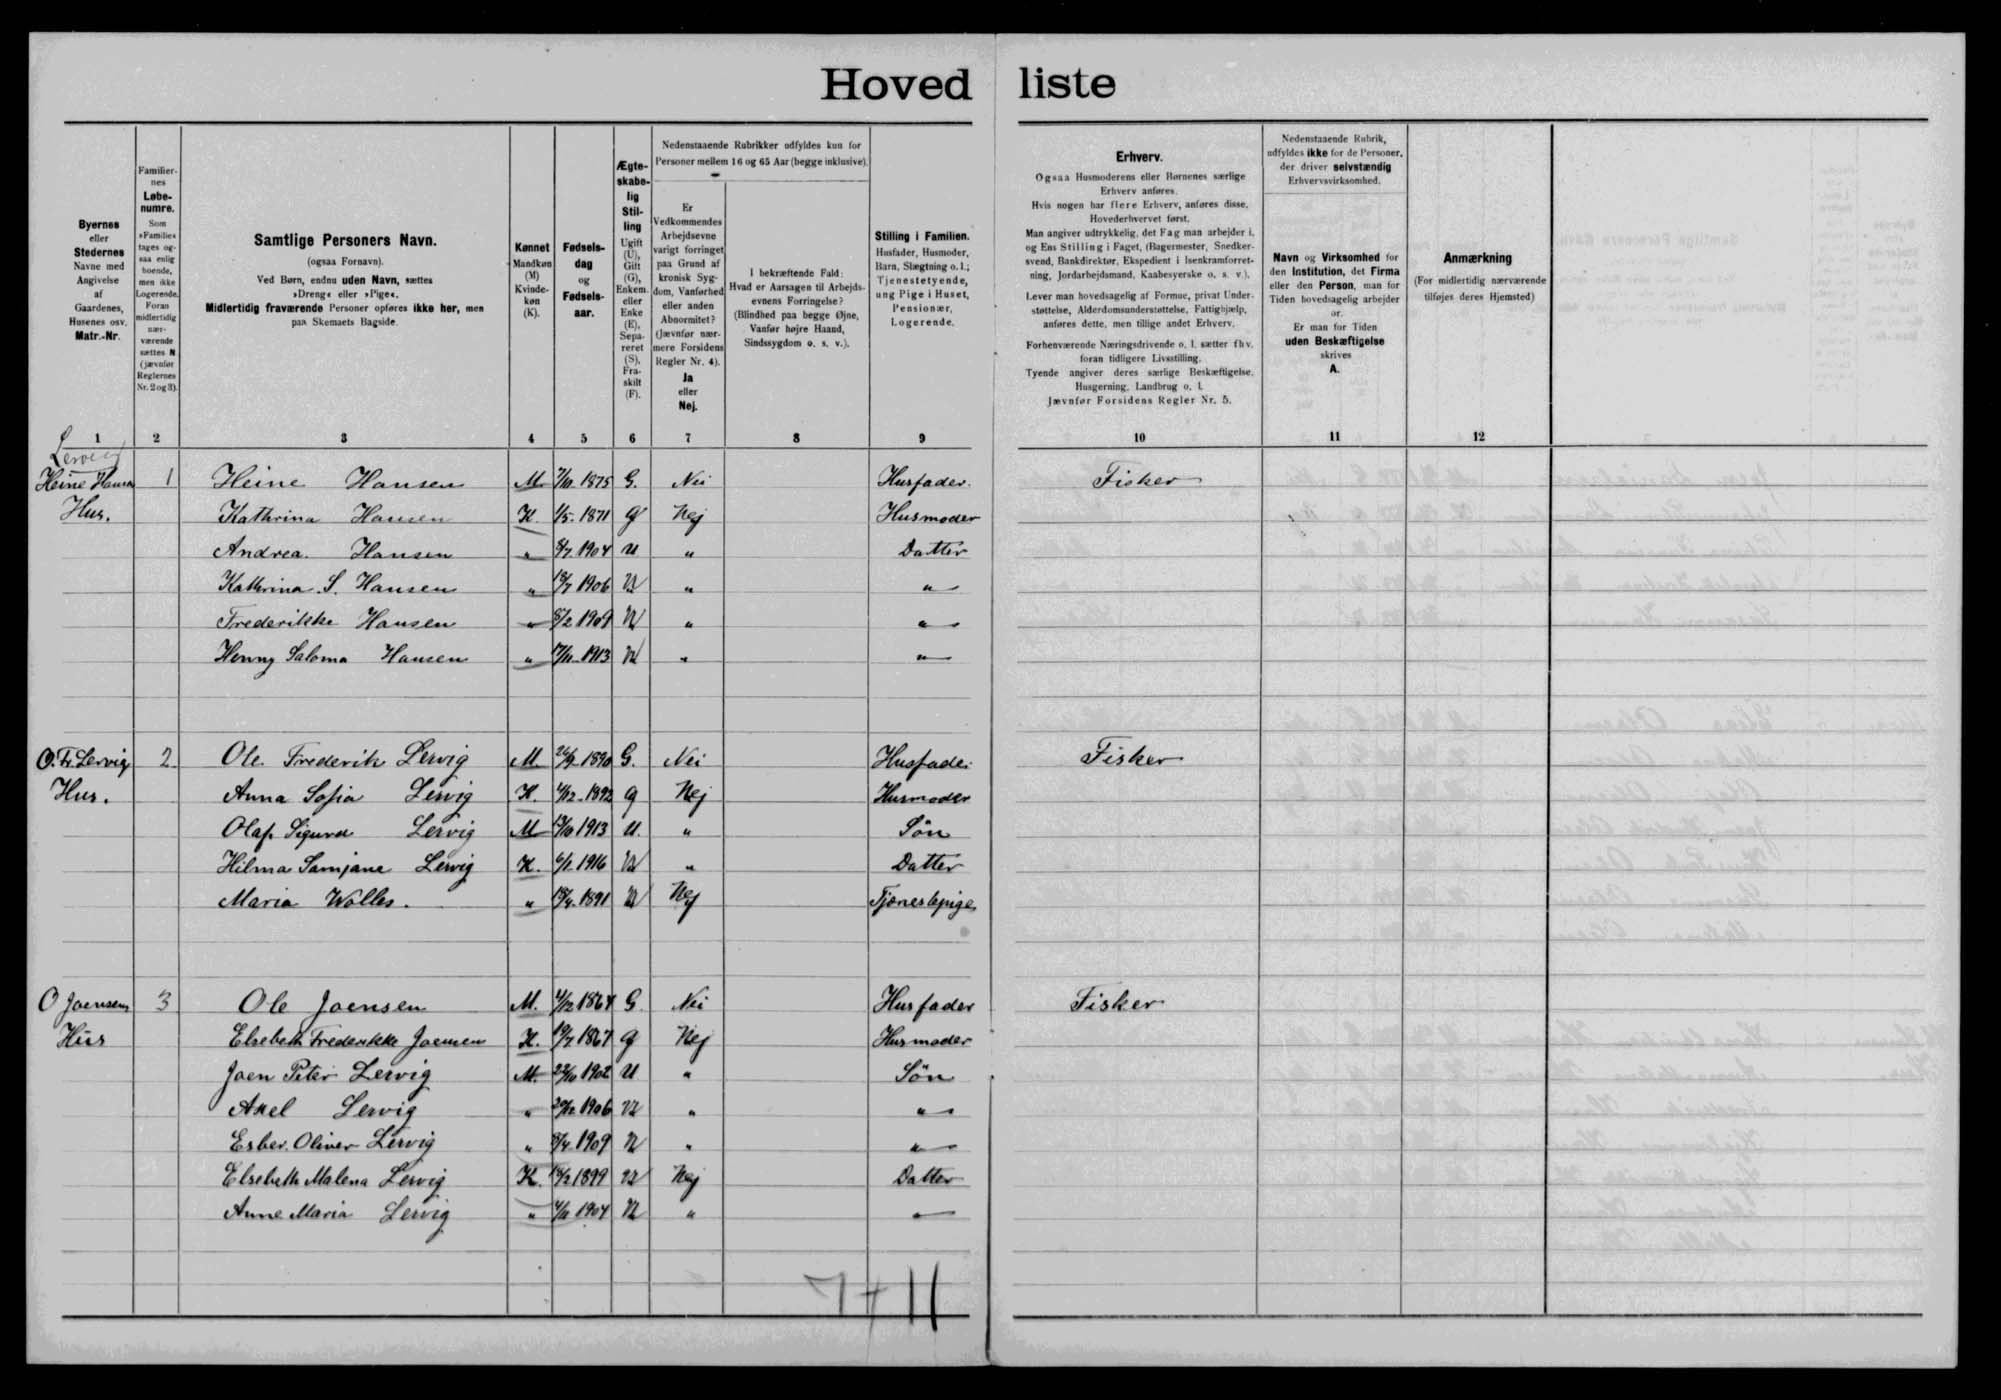 Hoved liste
Byernes
eller
Stedernes
Navne med
Angivelse
af
Gaardenes,
Husenes osv.
Matr.-Nr.
Familier-
nes
Løbe-
numre.
Som
»Familie«
tages og-
saa enlig
boende,
men ikke
Logerende.
Foran
midlertidig
nær-
værende
sættes N
(jævnfør
Reglernes
Nr. 2 og 3).
Samtlige Personers Navn.
(ogsaa Fornavn).
Ved Børn, endnu uden Navn, sættes
»Dreng« eller »Pige«.
Midlertidig fraværende Personer opføres ikke her, men
paa Skemaets Bagside.
Kønnet
Mandkøn
(M)
Kvinde-
køn
(K).
Fødsels-
dag
og
Fødsels-
aar.
Ægte-
skabe-
lig
Stil-
ling
Ugift
(U),
Gift
(G),
Enkem.
eller
Enke
(E),
Sepa-
reret
(S),
Fra-
skilt
(F).
Nedenstaaende Rubrikker udfyldes kun for
Personer mellem 16 og 65 Aar (begge inklusive).
Er
Vedkommendes
Arbejdsevne
varigt forringet
paa Grund af
kronisk Syg-
dom, Vanførhed
eller anden
Abnormitet?
(Jævnfør nær-
mere Forsidens
Regler Nr. 4).
Ja
eller
Nej.
I bekræftende Fald:
Hvad er Aarsagen til Arbejds-
evnens Forringelse?
(Blindhed paa begge Øjne,
Vanfør højre Haand,
Sindssygdom o. s. v.).
Stilling i Familien.
Husfader, Husmoder,
Barn, Slægtning o. l.;
Tjenestetyende,
ung Pige i Huset,
Pensionær,
Logerende.
Erhverv.
Ogsaa Husmoderens eller Børnenes særlige
Erhverv anføres.
Hvis nogen har flere Erhverv, anføres disse,
Hovederhvervet først.
Man angiver udtrykkelig, det Fag man arbejder i,
og Ens Stilling i Faget, (Bagermester, Snedker-
svend, Bankdirektør, Ekspedient i Isenkramforret-
ning, Jordarbejdsmand, Kaabesyerske o. s. v.).
Lever man hovedsagelig af Formue, privat Under-
støttelse, Alderdomsunderstøttelse, Fattighjælp,
anføres dette, men tillige andet Erhverv.
Forhenværende Næringsdrivende o. l. sætter fhv.
foran tidligere Livsstilling.
Tyende angiver deres særlige Beskæftigelse,
Husgerning, Landbrug o. l.
Jævnfør Forsidens Regler Nr. 5.
Nedenstaaende Rubrik,
udfyldes ikke for de Personer,
der driver selvstændig
Erhvervsvirksomhed.
Navn og Virksomhed for
den Institution, det Firma
eller den Person, man for
Tiden hovedsagelig arbejder
or.
Er man for Tiden
uden Beskæftigelse
skrives
A.
Anmærkning
(For midlertidig nærværende
tilføjes deres Hjemsted)
1 2 3 4 5 6 7 8 9 10 11 12
Lervig
Heine Hansen 1 Heine Hansen M 7/10 1875 G. Nei Husfader. Fisker
Hus. Kathrina Hansen K. 1/5 - 1871 G Nej Husmoder
Andrea. Hansen " 8/7 1904 U " Datter
Kathrina. S. Hansen " 18/7 1906 U " "
Frederikke Hansen " 8/2 1909 U " "
Henny Saloma Hansen " 17/11 1913 U " "
O. Fr. Lervig 2 Ole Frederik Lervig M. 26/9 1890 G. Nei Husfader Fisker
Hus. Anna Sofia Lervig K. 4/12 - 1892 G Nej Husmoder
Olaf Sigurd Lervig M 13/10 1913 U. " Søn
Hilma Samjane Lervig K. 6/1 1916 U " Datter
Maria Wolles. " 18/4 - 1891 U Nej Tjenestepige
O Joensens 3 Ole Joensen M. 4/12 1864 G Nei Husfader Fisker
Hus Elsebeth Frederikke Joensen K. 19/7 1867 G Nej Husmoder
Joen Peter Lervig M. 22/10 1902 U " Søn
Axel Lervig " 20/12 1906 U " "
Esber. Oliver Lervig " 8/4 1909 U " "
Elsebeth Malena Lervig K. 18/2 1899 U Nej Datter
Anne Maria Lervig " 4/11 1904 U " "
7+11